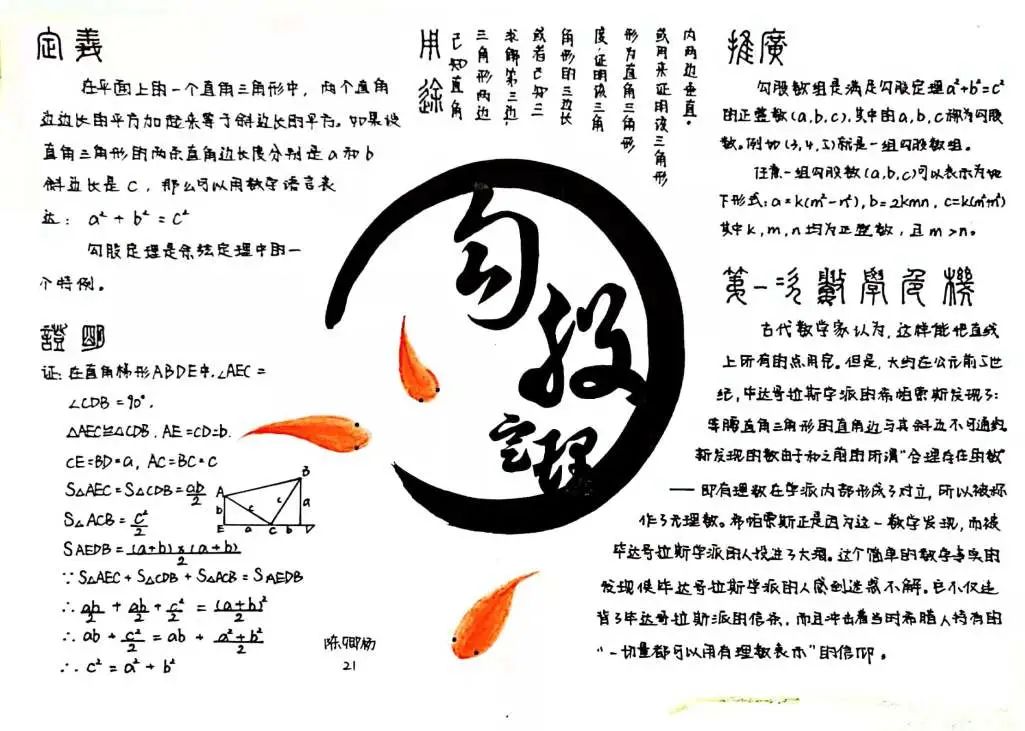 定義
在平面上的一个直角三角形中，两个直角
边边长的平方加起来等于斜边长的平方。如果设
直角三角形的两条直角边长度分别是a和b
斜边长是c，那么可以用数学语言表
达：a²+b²=c²
勾股定理是余弦定理中的一
个特例。
證明
证：在直角梯形ABDE中，∠AEC=
∠CDB=90°.
△AEC≌△CDB. AE=CD=b.
CE=BD=a, AC=BC=c
S△AEC=S△CDB=ab/2
S△ACB=c²/2
SAEDB=(a+b)×(a+b)/2
∵S△AEC+S△CDB+S△ACB=SAEDB
∴ab/2+ab/2+c²/2=(a+b)²/2
∴ab+c²/2=ab+a²+b²/2
∴c²=a²+b²
A
B
b
c
c
a
E
a
C
b
D
用途
已知直角
三角形两边
求解第三边，
或者已知三
角形的三边长
度，证明该三角
形为直角三角形
或用来证明该三角形
内两边垂直。
勾股
定理
陈卿杨
21
推廣
勾股数组是满足勾股定理a²+b²=c²
的正整数(a,b,c)，其中的a,b,c称为勾股
数。例如(3,4,5)就是一组勾股数组。
任意一组勾股数(a,b,c)可以表示为如
下形式：a=k(m²-n²), b=2kmn, c=k(m²+n²)
其中k,m,n均为正整数，且m>n。
第一次數學危機
古代数学家认为，这样能把直线
上所有的点用完。但是，大约在公元前5世
纪，毕达哥拉斯学派的希帕索斯发现了：
等腰直角三角形的直角边与其斜边不可通约
新发现的数由于和之前的所谓“合理存在的数”
——即有理数在学派内部形成了对立，所以被称
作了无理数。希帕索斯正是因为这一数学发现，而被
毕达哥拉斯学派的人投进了大海。这个简单的数学事实的
发现使毕达哥拉斯学派的人感到迷惑不解。它不仅违
背了毕达哥拉斯派的信条，而且冲击着当时希腊人持有的
“一切量都可以用有理数表示”的信仰。